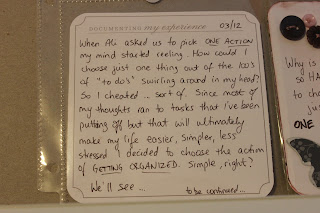 DOCUMENTING my experience 03/12
When Ali asked us to pick ONE ACTION
my mind started reeling. How could I
choose just one thing out of the 100's
of "to do's" swirling around in my head?
So I cheated .. sort of. Since most of
my thoughts ran to tasks that I've been
putting off but that will ultimately
make my life easier, simpler, less
stressed I decided to choose the action
of GETTING ORGANIZED. Simple, right?
We'll see ...
to be continued...
Why is
so HA
to cho
just
ONE